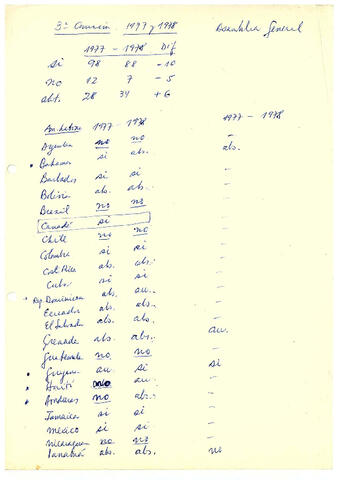 3ª Comisión 1977 y 1978 Asamblea General
1977 - 1978 Dif
si 98 88 -10
no 12 7 -5
abt. 28 34 +6
Am. Latina 1977 - 1978 1977 - 1978
Argentina no no -
• Bahamas si abs. abs.
Barbados si si -
Bolivia abs. abs. -
Brasil no no -
Canadá si
Chile no no -
Colombia si si -
Cost Rica abs. abs. -
Cuba si si -
• Rep Dominicana abs. au. -
Ecuador abs. abs. -
El Salvador abs. abs. -
Grenade abs. abs. au.
Guatemala no no -
• Guyana au. si si
• Haiti no au. -
• Honduras no abs. -
Jamaica si si -
Mexico si si -
Nicaragua no no -
Panamá abs. abs. no